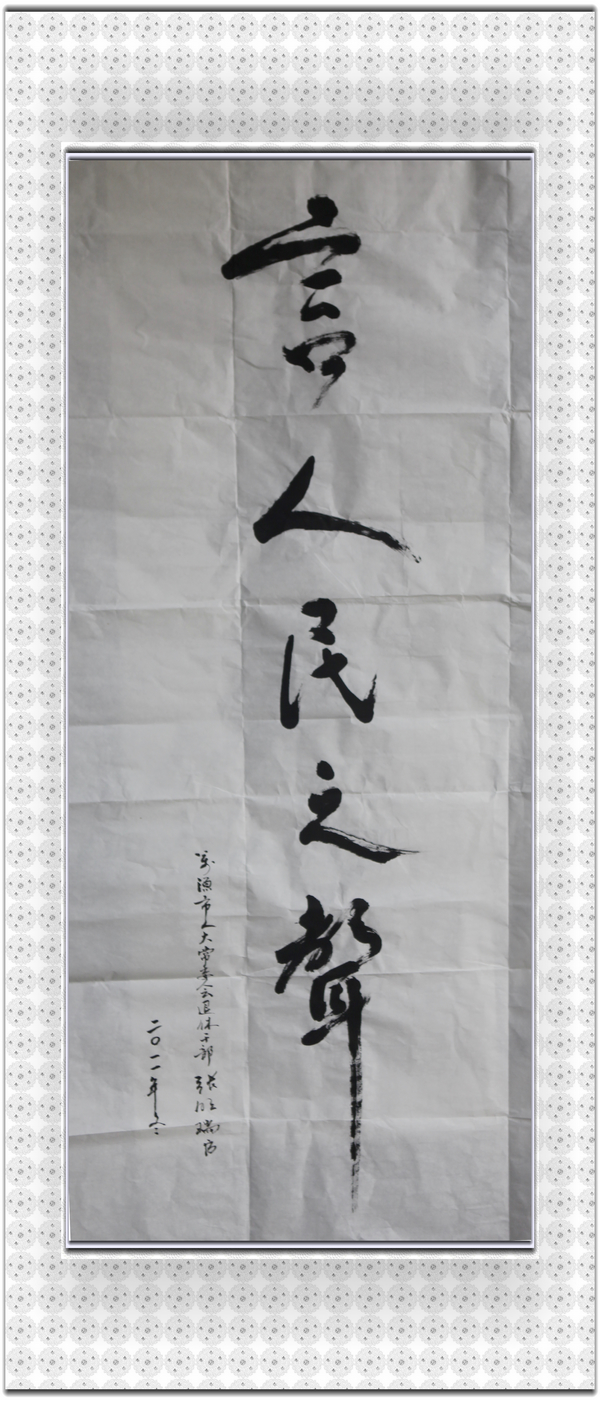 言人民之聲
济源市人大常委会退休干部 张 瑞
二〇一一年冬